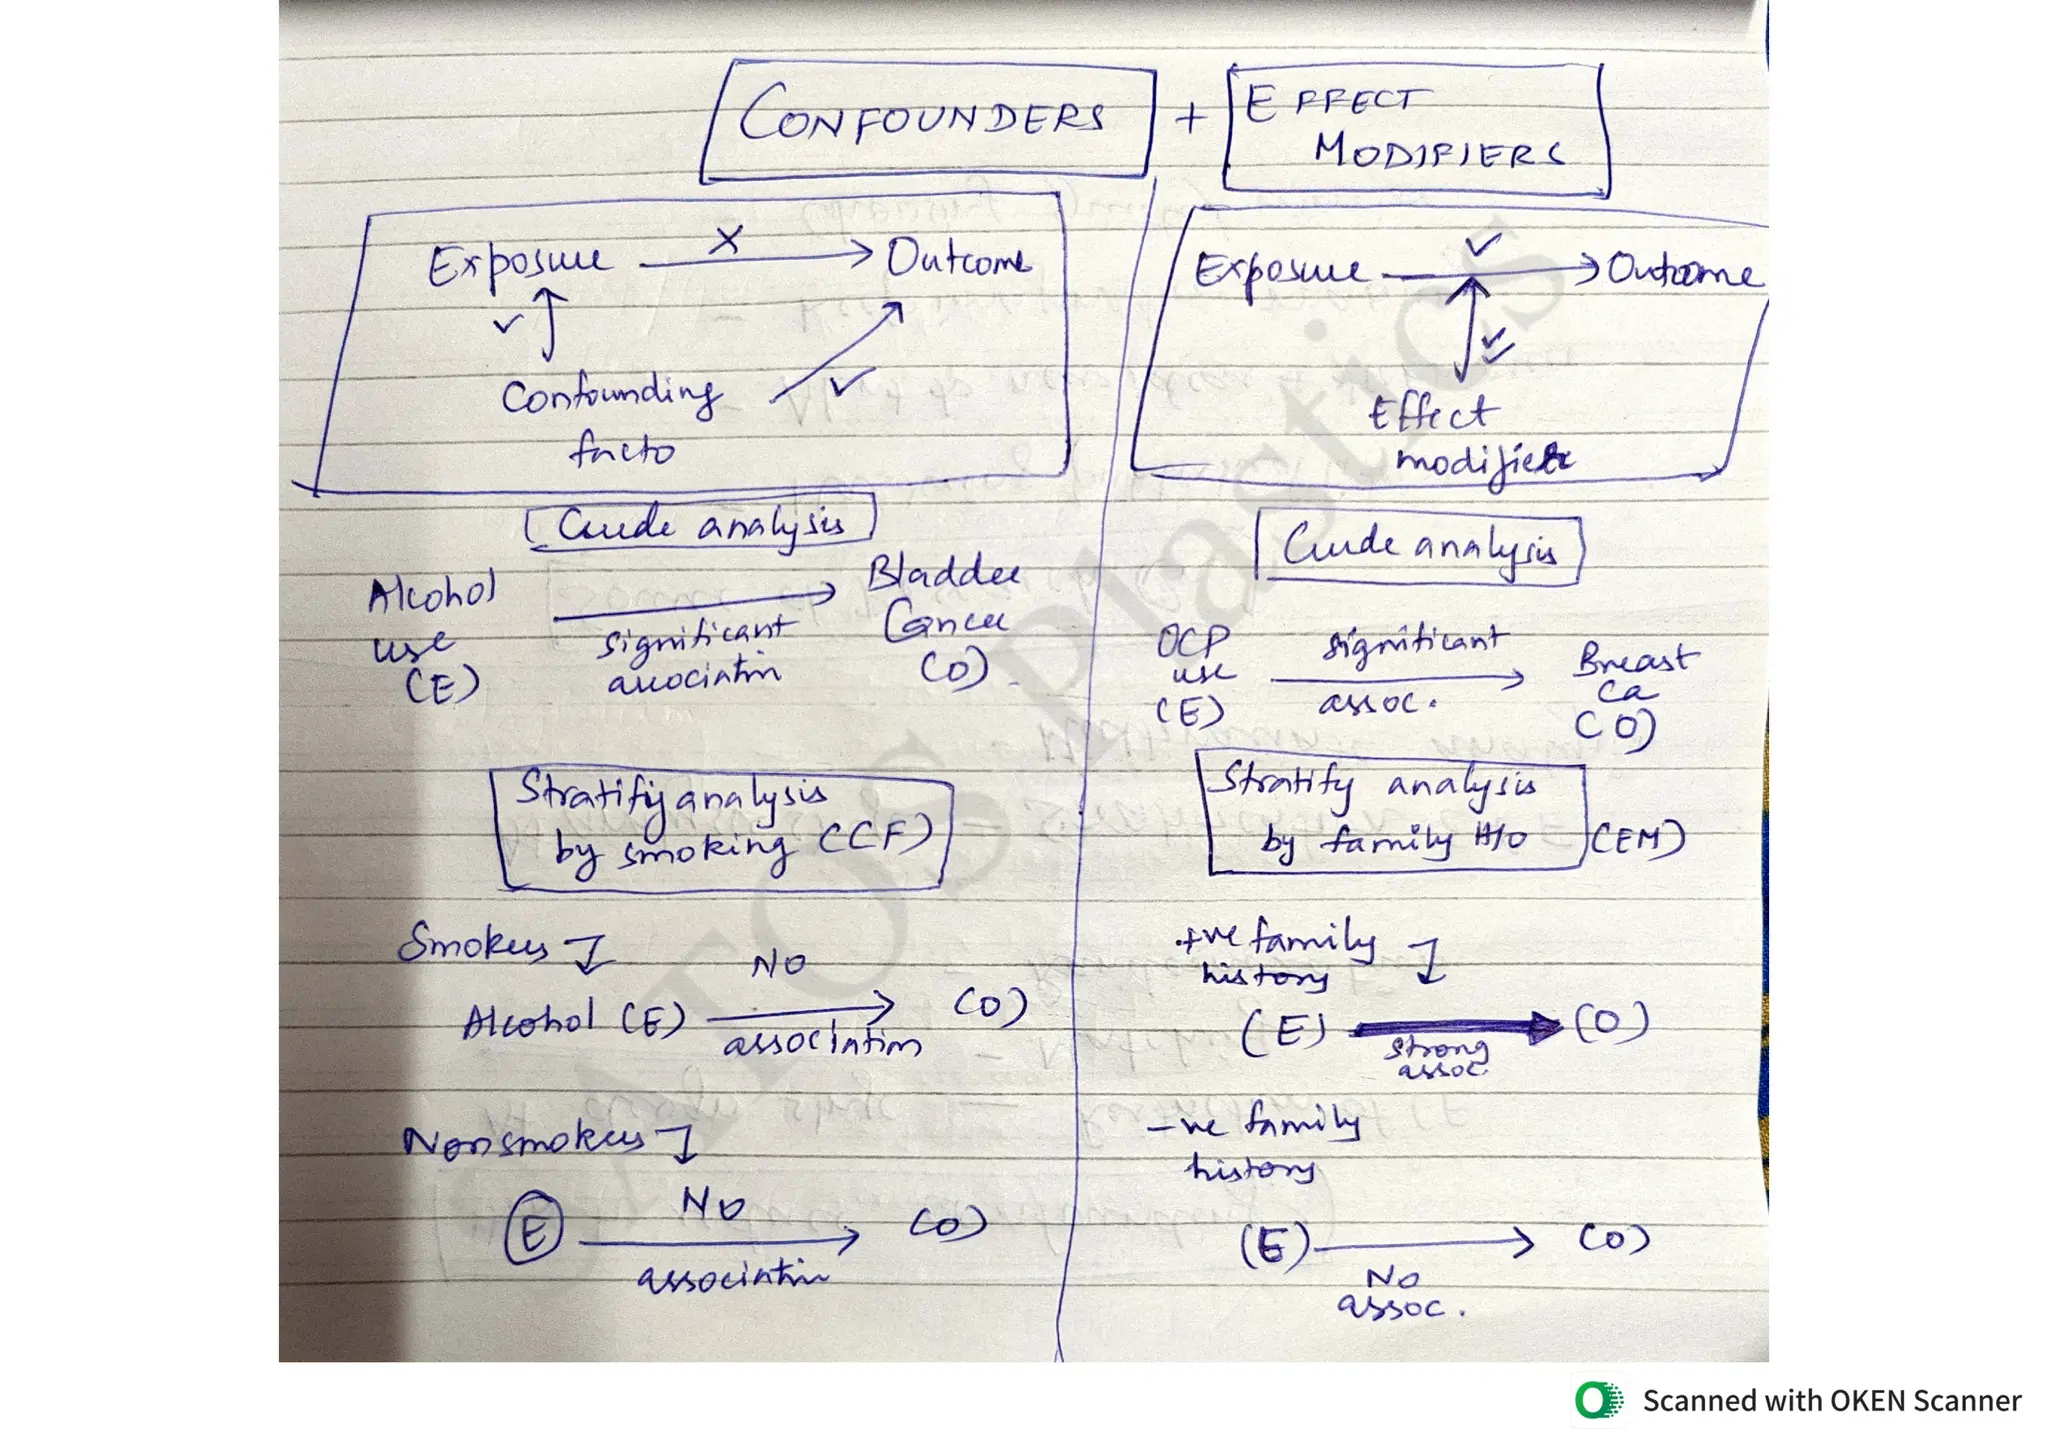 CONFOUNDERS + EFFECT
MODIFIERS
Exposure X Outcome
Confounding
facto
Exposure Outcome
Effect
modifier
Crude analysis
Alcohol
use
(E)
significant
association
Bladder
Cancer
(O)
Stratify analysis
by smoking (CF)
Smokers
Alcohol (E) No (O)
association
Nonsmokers
E No (O)
association
Crude analysis
OCP
use
(E)
significant
assoc.
Breast
Ca
(O)
Stratify analysis
by family H/o (EM)
+ve family
history
(E) (O)
strong
assoc.
-ve family
history
(E) (O)
No
assoc.
SATOS plastics
Scanned with OKEN Scanner